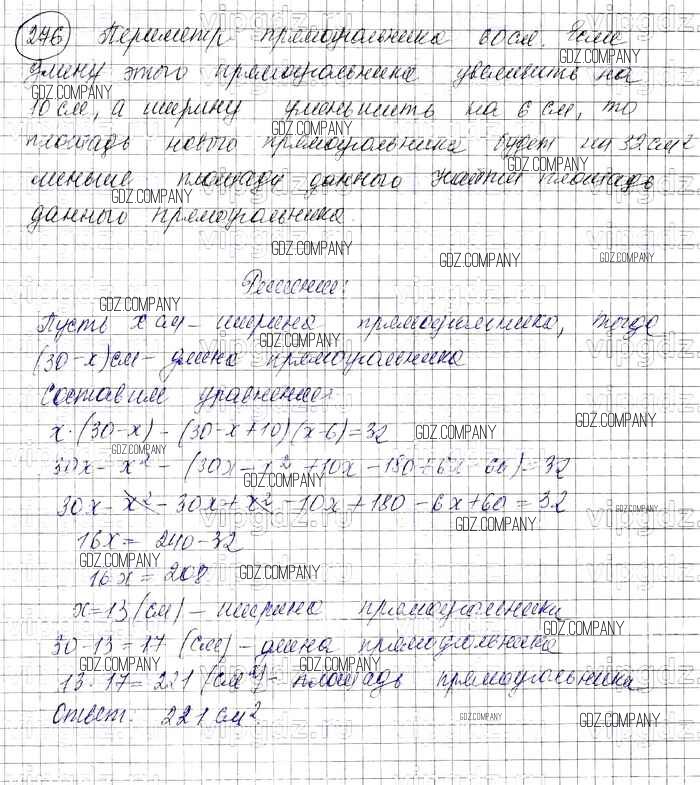 246 Периметр прямоугольника 60 см. Если
длину этого прямоугольника увеличить на
10 см, а ширину уменьшить на 6 см, то
площадь нового прямоугольника будет на 32 см²
меньше площади данного Найти площадь
данного прямоугольника.
Решение:
Пусть x см - ширина прямоугольника, тогда
(30-x) см - длина прямоугольника
Составим уравнение
x·(30-x) - (30-x+10)(x-6)=32
30x - x² - (30x - x² + 10x - 180 + 6x - 60) = 32
30x - x² - 30x + x² - 10x + 180 - 6x + 60 = 32
16x = 240-32
16x = 208
x=13 (см) - ширина прямоугольника
30-13=17 (см) - длина прямоугольника
13·17=221 (см²) - площадь прямоугольника
Ответ: 221 см².
GDZ.COMPANY
vipgdz.ru